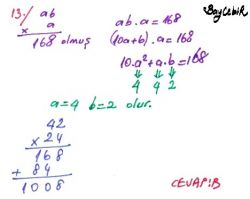 BayCebir
13./ ab
x a
168 olmuş
ab.a=168
(10a+b).a=168
10.a²+a.b=168
4 4 2
a=4 b=2 olur.
42
x 24
168
+ 84
1008
CEVAP:B